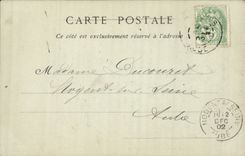 CARTE POSTALE
Ce côté est exclusivement réservé à l'adresse
Madame Ducouret
Nogent sur Seine
Aube
DEC
02
AUBE